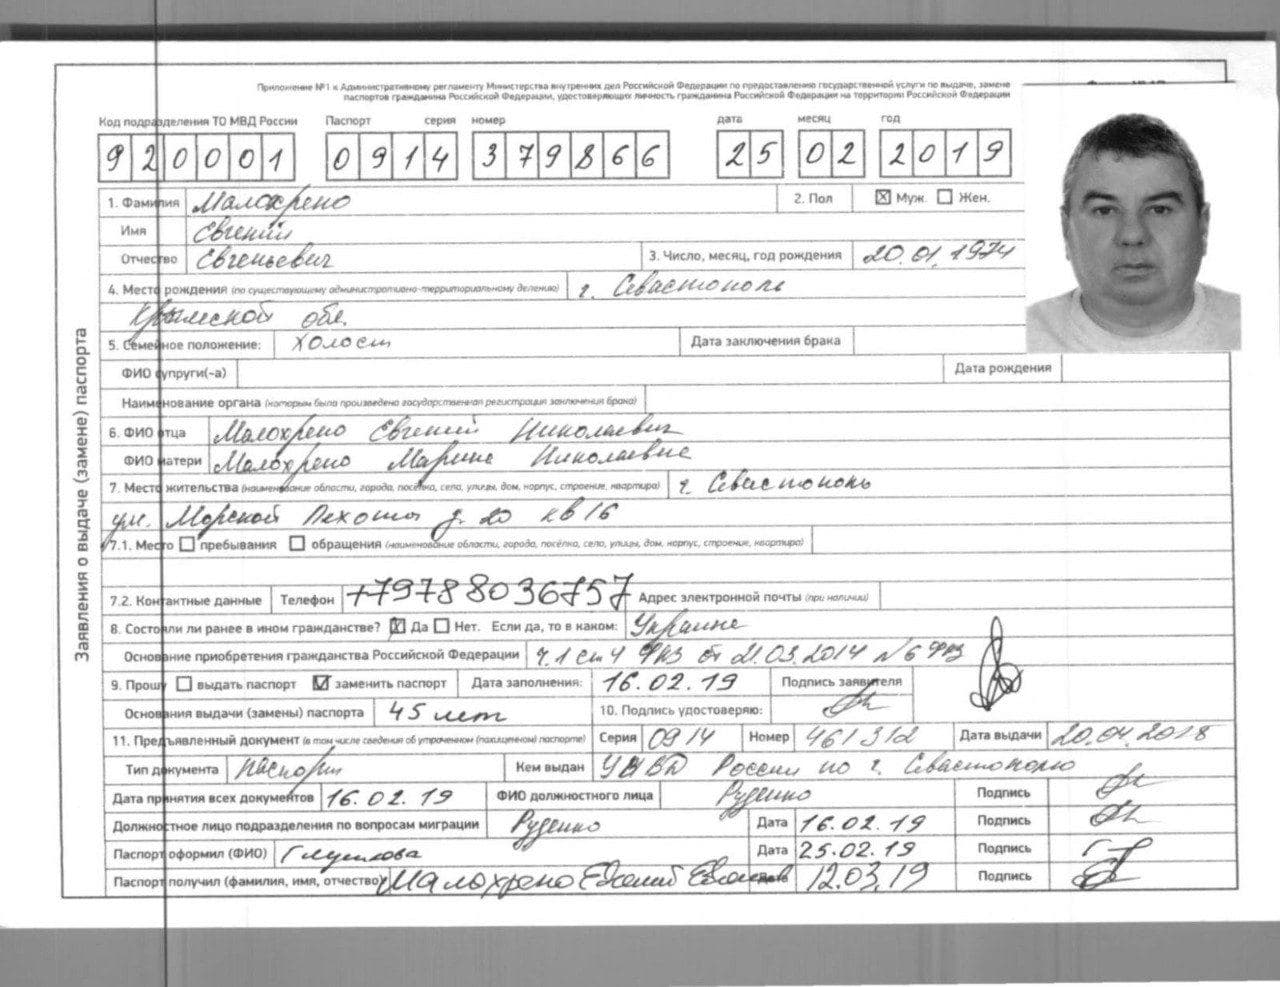 Приложение №1 к Административному регламенту Министерства внутренних дел Российской Федерации по предоставлению государственной услуги по выдаче, замене
паспортов гражданина Российской Федерации, удостоверяющих личность гражданина Российской Федерации на территории Российской Федерации
Код подразделения ТО МВД России Паспорт серия номер дата месяц год
920001 0914 379866 25 02 2019
Заявления о выдаче (замене) паспорта
1. Фамилия Малохрено 2. Пол Муж. Жен.
Имя Евгений
Отчество Евгеньевич 3. Число, месяц, год рождения 20.01.1974
4. Место рождения (по существующему административно-территориальному делению) г. Севастополь
Крымской обл.
5. Семейное положение: Холост Дата заключения брака
ФИО супруги(-а) Дата рождения
Наименование органа (которым была произведена государственная регистрация заключения брака)
6. ФИО отца Малохрено Евгений Николаевич
ФИО матери Малохрено Марина Николаевна
7. Место жительства (наименование области, города, посёлка, села, улицы, дом, корпус, строение, квартира) г. Севастополь
ул. Морской Пехоты д. 20 кв 16
7.1. Место пребывания обращения (наименование области, города, посёлка, села, улицы, дом, корпус, строение, квартира)
7.2. Контактные данные Телефон +79788036757 Адрес электронной почты (при наличии)
8. Состояли ли ранее в ином гражданстве? Да Нет. Если да, то в каком: Украине
Основание приобретения гражданства Российской Федерации ч.1 ст 4 ФКЗ от 21.03.2014 №6 ФКЗ
9. Прошу выдать паспорт заменить паспорт Дата заполнения: 16.02.19 Подпись заявителя
Основания выдачи (замены) паспорта 45 лет 10. Подпись удостоверяю:
11. Предъявленный документ (в том числе сведения об утраченном (похищенном) паспорте) Серия 0914 Номер 461312 Дата выдачи 20.04.2018
Тип документа Паспорт Кем выдан УМВД России по г. Севастополю
Дата принятия всех документов 16.02.19 ФИО должностного лица Руденко Подпись
Должностное лицо подразделения по вопросам миграции Руденко Дата 16.02.19 Подпись
Паспорт оформил (ФИО) Глушкова Дата 25.02.19 Подпись
Паспорт получил (фамилия, имя, отчество) Малохрено Евгений Дата 12.03.19 Подпись